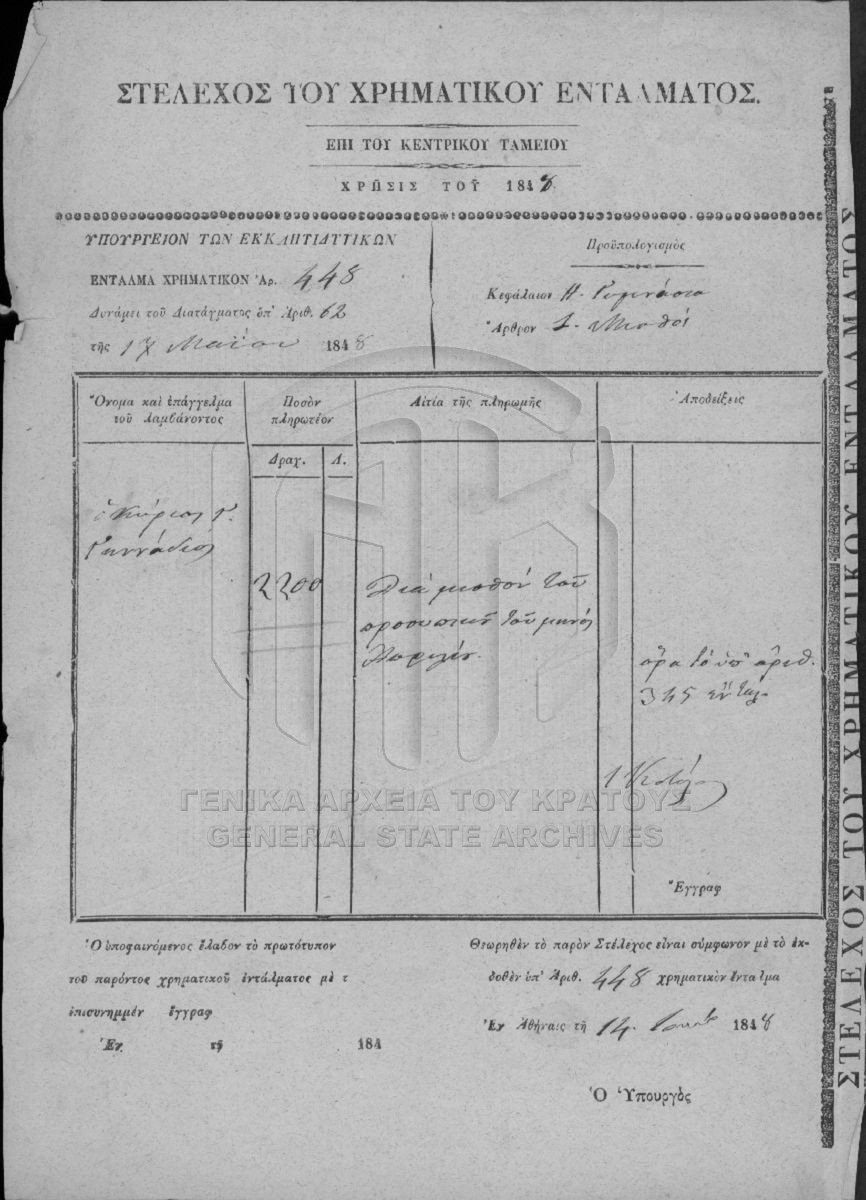 ΣΤΕΛΕΧΟΣ ΤΟΥ ΧΡΗΜΑΤΙΚΟΥ ΕΝΤΑΛΜΑΤΟΣ.
ΕΠΙ ΤΟΥ ΚΕΝΤΡΙΚΟΥ ΤΑΜΕΙΟΥ
ΧΡΗΣΙΣ ΤΟΥ 1848
ΥΠΟΥΡΓΕΙΟΝ ΤΩΝ ΕΚΚΛΗΣΙΑΣΤΙΚΩΝ
ΕΝΤΑΛΜΑ ΧΡΗΜΑΤΙΚΟΝ Ἀρ. 448
Δυνάμει τοῦ Διατάγματος ὑπ' Ἀριθ. 62
τῆς 17 Μαΐου 1848
Προϋπολογισμὸς
Κεφάλαιον Η. Γυμνάσια
Ἄρθρον 1. Μισθοί
Ὄνομα καὶ ἐπάγγελμα
τοῦ λαμβάνοντος
Ποσὸν
πληρωτέον
Αἰτία τῆς πληρωμῆς
Ἀποδείξεις
Δραχ. Λ.
ὁ Κύριος Γ.
Γεννάδιος
2200
Διά μισθόν τοῦ
προσωπικοῦ τοῦ μηνός
Ἀπριλίου
ὅρα τό ὑπ' ἀριθ.
345 ἔνταλ.
Ἔγγραφ
Ὁ ὑποφαινόμενος ἔλαβον τὸ πρωτότυπον
τοῦ παρόντος χρηματικοῦ ἐντάλματος μὲ τ
ἐπισυνημμέν ἔγγραφ
Ἐν τῇ 184
Θεωρηθὲν τὸ παρὸν Στέλεχος εἶναι σύμφωνον μὲ τὸ ἐκ-
δοθὲν ὑπ' Ἀριθ. 448 χρηματικὸν ἔνταλμα
Ἐν Ἀθήναις τῇ 14 1848
Ὁ Ὑπουργὸς
ΣΤΕΛΕΧΟΣ ΤΟΥ ΧΡΗΜΑΤΙΚΟΥ ΕΝΤΑΛΜΑΤΟΣ
ΓΕΝΙΚΑ ΑΡΧΕΙΑ ΤΟΥ ΚΡΑΤΟΥΣ
GENERAL STATE ARCHIVES